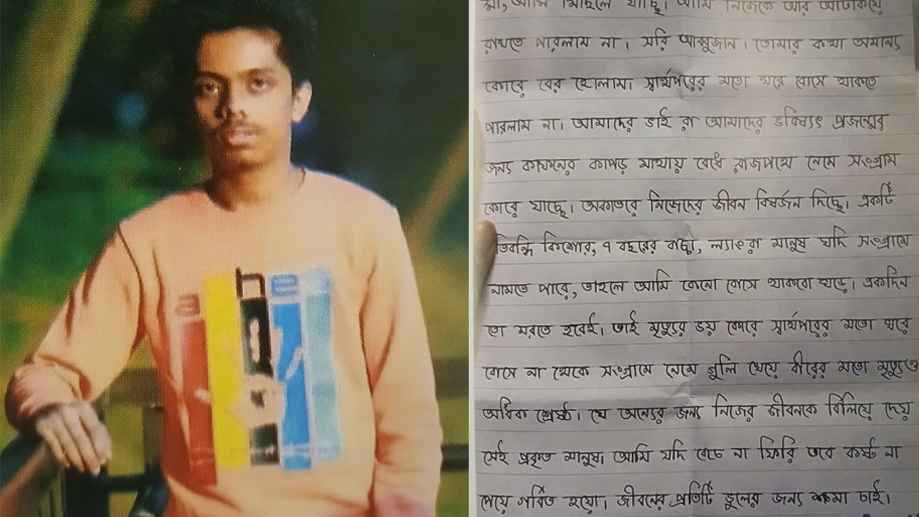 মা, আমি মিছিলে যাচ্ছি। আমি নিজেকে আর আটকিয়ে
রাখতে পারলাম না। সরি আব্বুজান। তোমার কথা অমান্য
কোরে বের হোলাম। স্বার্থপরের মতো ঘরে বোসে থাকতে
পারলাম না। আমাদের ভাই রা আমাদের ভবিষ্যৎ প্রজন্মের
জন্য কাফনের কাপড় মাথায় বেধে রাজপথে নেমে সংগ্রাম
কোরে যাচ্ছে। অকাতরে নিজেদের জীবন বিষর্জন দিচ্ছে। একটি
তিবন্ধি কিশোর, ৭ বছরের বাচ্চা, ল্যাংরা মানুষ যদি সংগ্রামে
নামতে পারে, তাহলে আমি কেনো বোসে থাকবো ঘড়ে। একদিন
তো মরতে হবেই। তাই মৃত্যুর ভয় কোরে স্বার্থপরের মতো ঘরে
বোসে না থেকে সংগ্রামে নেমে গুলি খেয়ে বীরের মতো মৃত্যুও
অধিক শ্রেষ্ঠ। যে অন্যের জন্য নিজের জীবনকে বিলিয়ে দেয়
সেই প্রকৃত মানুষ। আমি যদি বেচে না ফিরি তবে কষ্ট না
পেয়ে গর্বিত হয়ো। জীবনের প্রতিটি ভুলের জন্য ক্ষমা চাই।